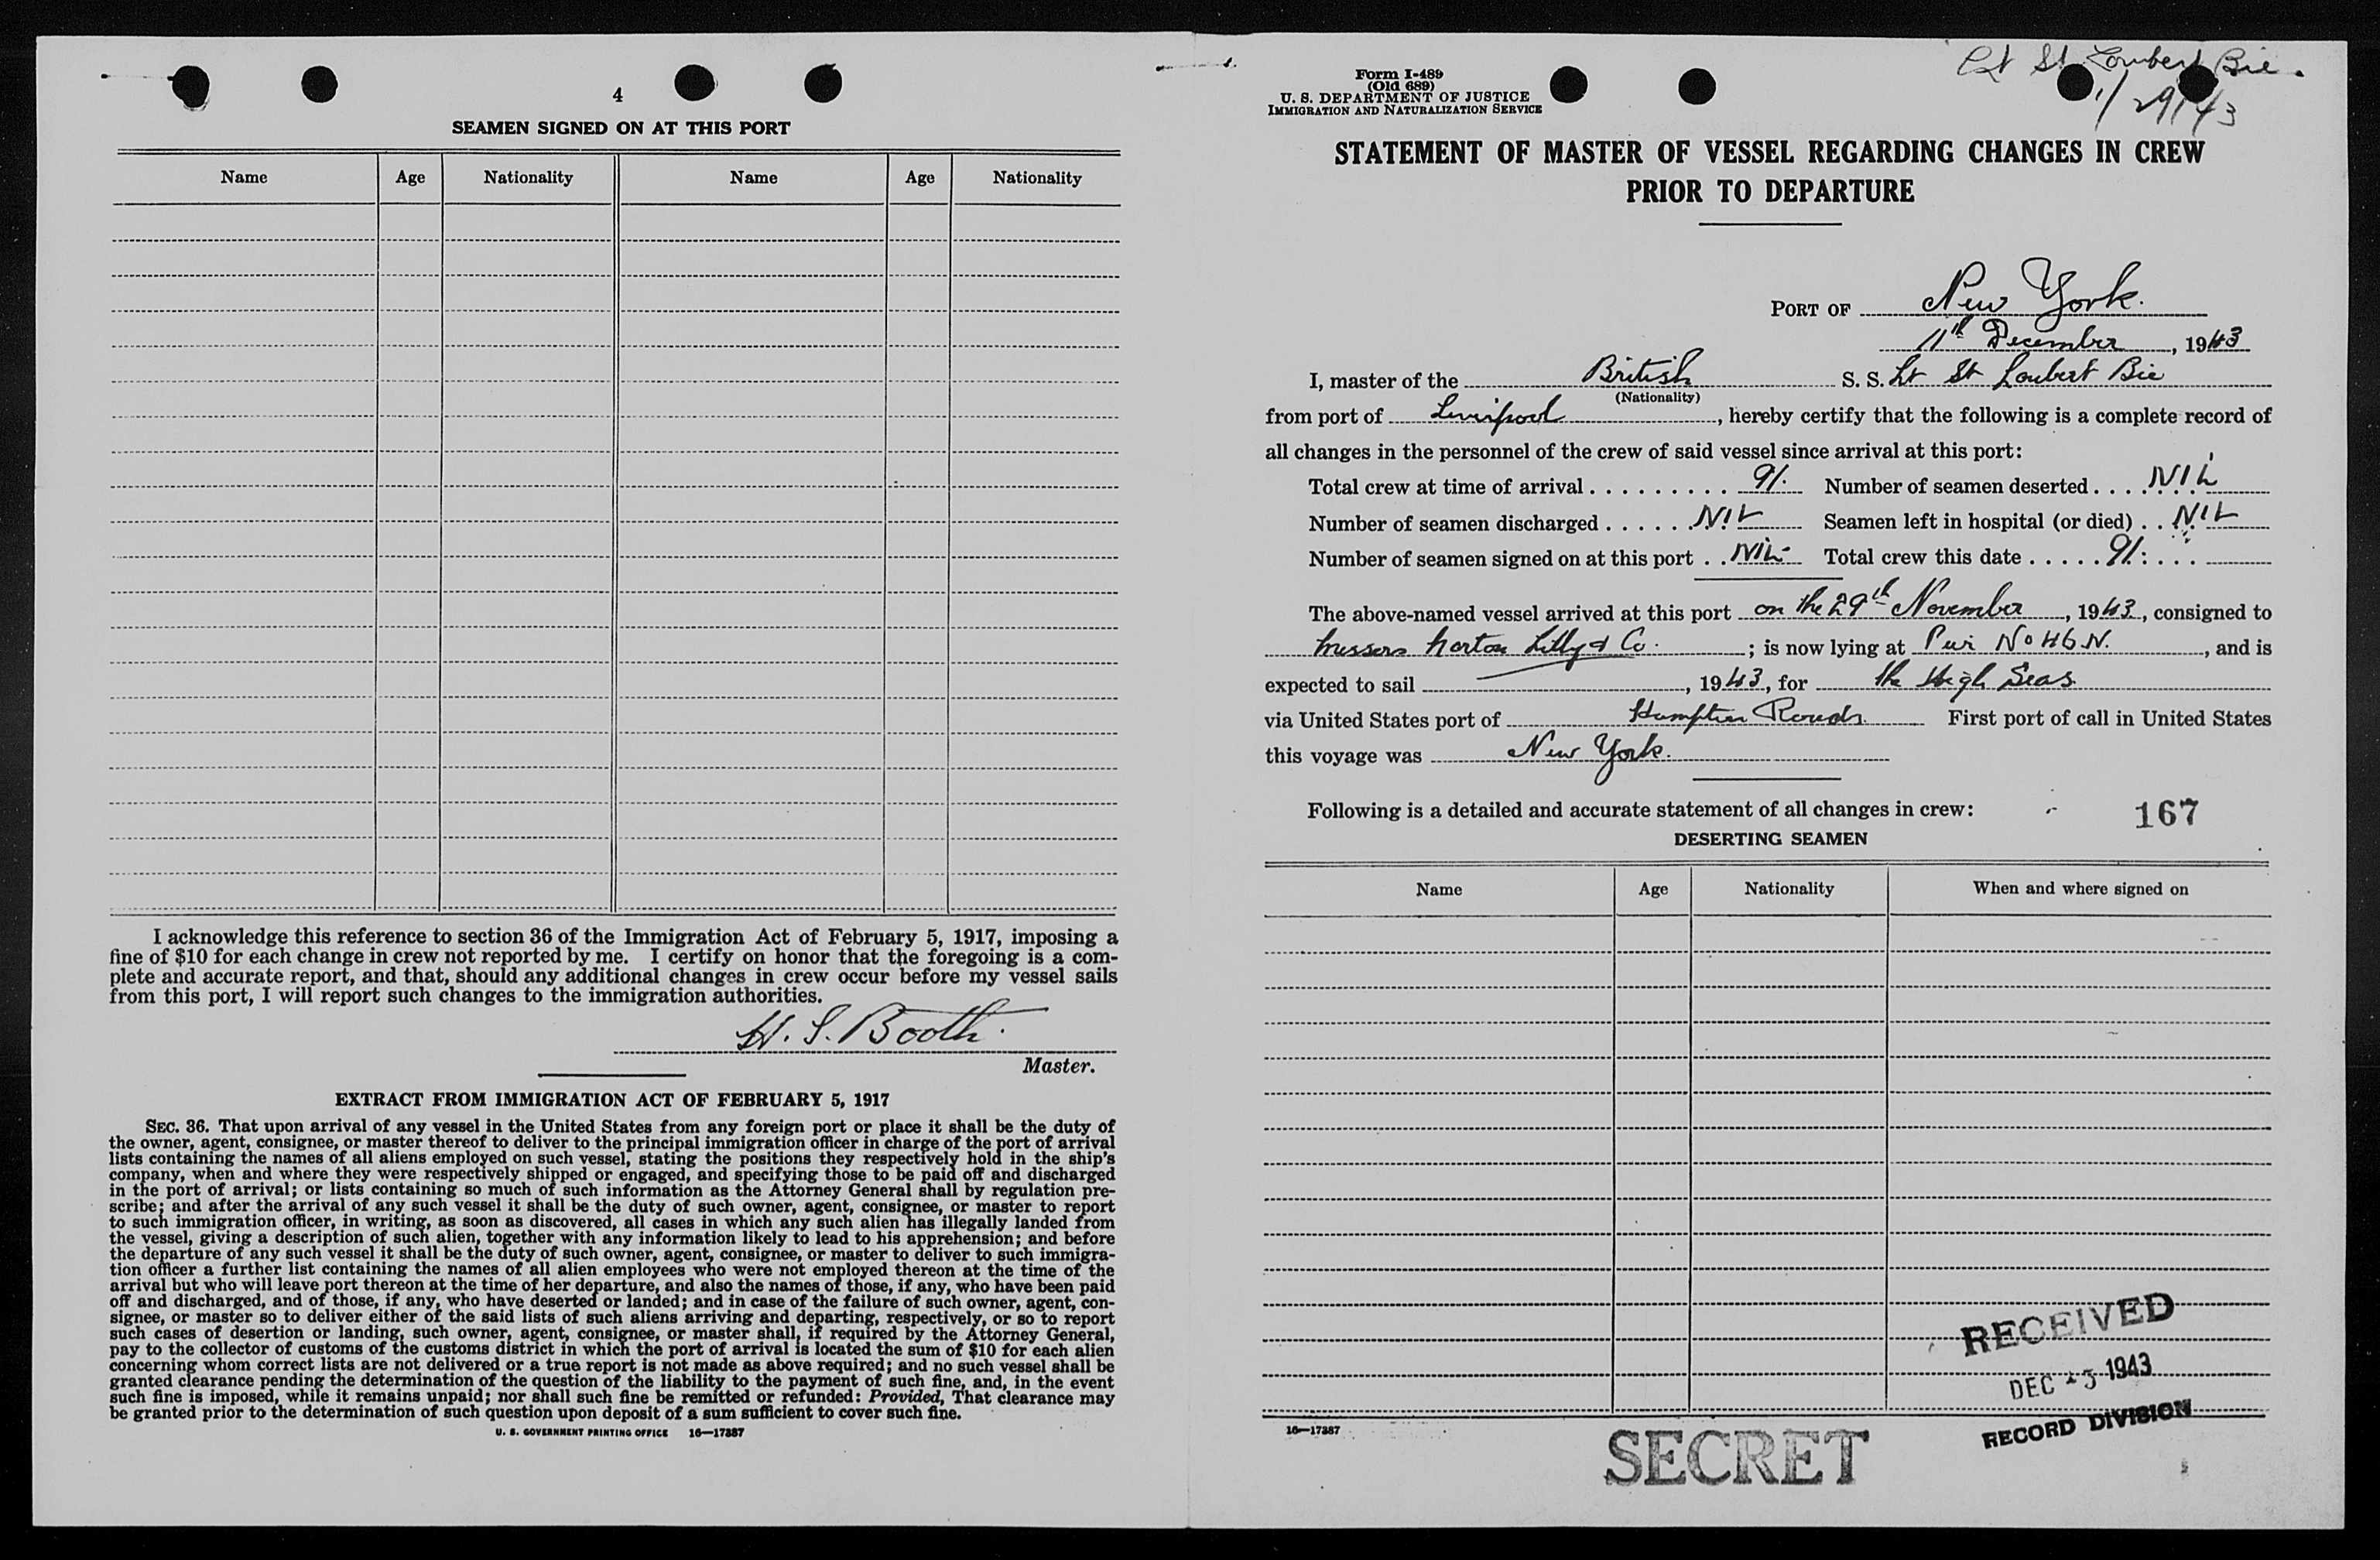 4
SEAMEN SIGNED ON AT THIS PORT
Name Age Nationality Name Age Nationality
I acknowledge this reference to section 36 of the Immigration Act of February 5, 1917, imposing a
fine of $10 for each change in crew not reported by me. I certify on honor that the foregoing is a com-
plete and accurate report, and that, should any additional changes in crew occur before my vessel sails
from this port, I will report such changes to the immigration authorities.
H. S. Booth.
Master.
EXTRACT FROM IMMIGRATION ACT OF FEBRUARY 5, 1917
SEC. 36. That upon arrival of any vessel in the United States from any foreign port or place it shall be the duty of
the owner, agent, consignee, or master thereof to deliver to the principal immigration officer in charge of the port of arrival
lists containing the names of all aliens employed on such vessel, stating the positions they respectively hold in the ship's
company, when and where they were respectively shipped or engaged, and specifying those to be paid off and discharged
in the port of arrival; or lists containing so much of such information as the Attorney General shall by regulation pre-
scribe; and after the arrival of any such vessel it shall be the duty of such owner, agent, consignee, or master to report
to such immigration officer, in writing, as soon as discovered, all cases in which any such alien has illegally landed from
the vessel, giving a description of such alien, together with any information likely to lead to his apprehension; and before
the departure of any such vessel it shall be the duty of such owner, agent, consignee, or master to deliver to such immigra-
tion officer a further list containing the names of all alien employees who were not employed thereon at the time of the
arrival but who will leave port thereon at the time of her departure, and also the names of those, if any, who have been paid
off and discharged, and of those, if any, who have deserted or landed; and in case of the failure of such owner, agent, con-
signee, or master so to deliver either of the said lists of such aliens arriving and departing, respectively, or so to report
such cases of desertion or landing, such owner, agent, consignee, or master shall, if required by the Attorney General,
pay to the collector of customs of the customs district in which the port of arrival is located the sum of $10 for each alien
concerning whom correct lists are not delivered or a true report is not made as above required; and no such vessel shall be
granted clearance pending the determination of the question of the liability to the payment of such fine, and, in the event
such fine is imposed, while it remains unpaid; nor shall such fine be remitted or refunded: Provided, That clearance may
be granted prior to the determination of such question upon deposit of a sum sufficient to cover such fine.
U. S. GOVERNMENT PRINTING OFFICE 16—17387
Form I-489
(Old 689)
U. S. DEPARTMENT OF JUSTICE
IMMIGRATION AND NATURALIZATION SERVICE
Lt St Loubert Bie.
11/29/43
STATEMENT OF MASTER OF VESSEL REGARDING CHANGES IN CREW
PRIOR TO DEPARTURE
PORT OF New York.
11th December, 1943
I, master of the British S. S. Lt St Loubert Bie
(Nationality)
from port of Liverpool, hereby certify that the following is a complete record of
all changes in the personnel of the crew of said vessel since arrival at this port:
Total crew at time of arrival 91. Number of seamen deserted NIL
Number of seamen discharged NIL Seamen left in hospital (or died) NIL
Number of seamen signed on at this port NIL Total crew this date 91.
The above-named vessel arrived at this port on the 29th November, 1943, consigned to
Messers Norton Lilly & Co.; is now lying at Pier No 46 N., and is
expected to sail , 1943, for the High Seas
via United States port of Hampton Roads. First port of call in United States
this voyage was New York.
Following is a detailed and accurate statement of all changes in crew:
167
DESERTING SEAMEN
Name Age Nationality When and where signed on
RECEIVED
DEC 1943
RECORD DIVISION
16—17387
SECRET